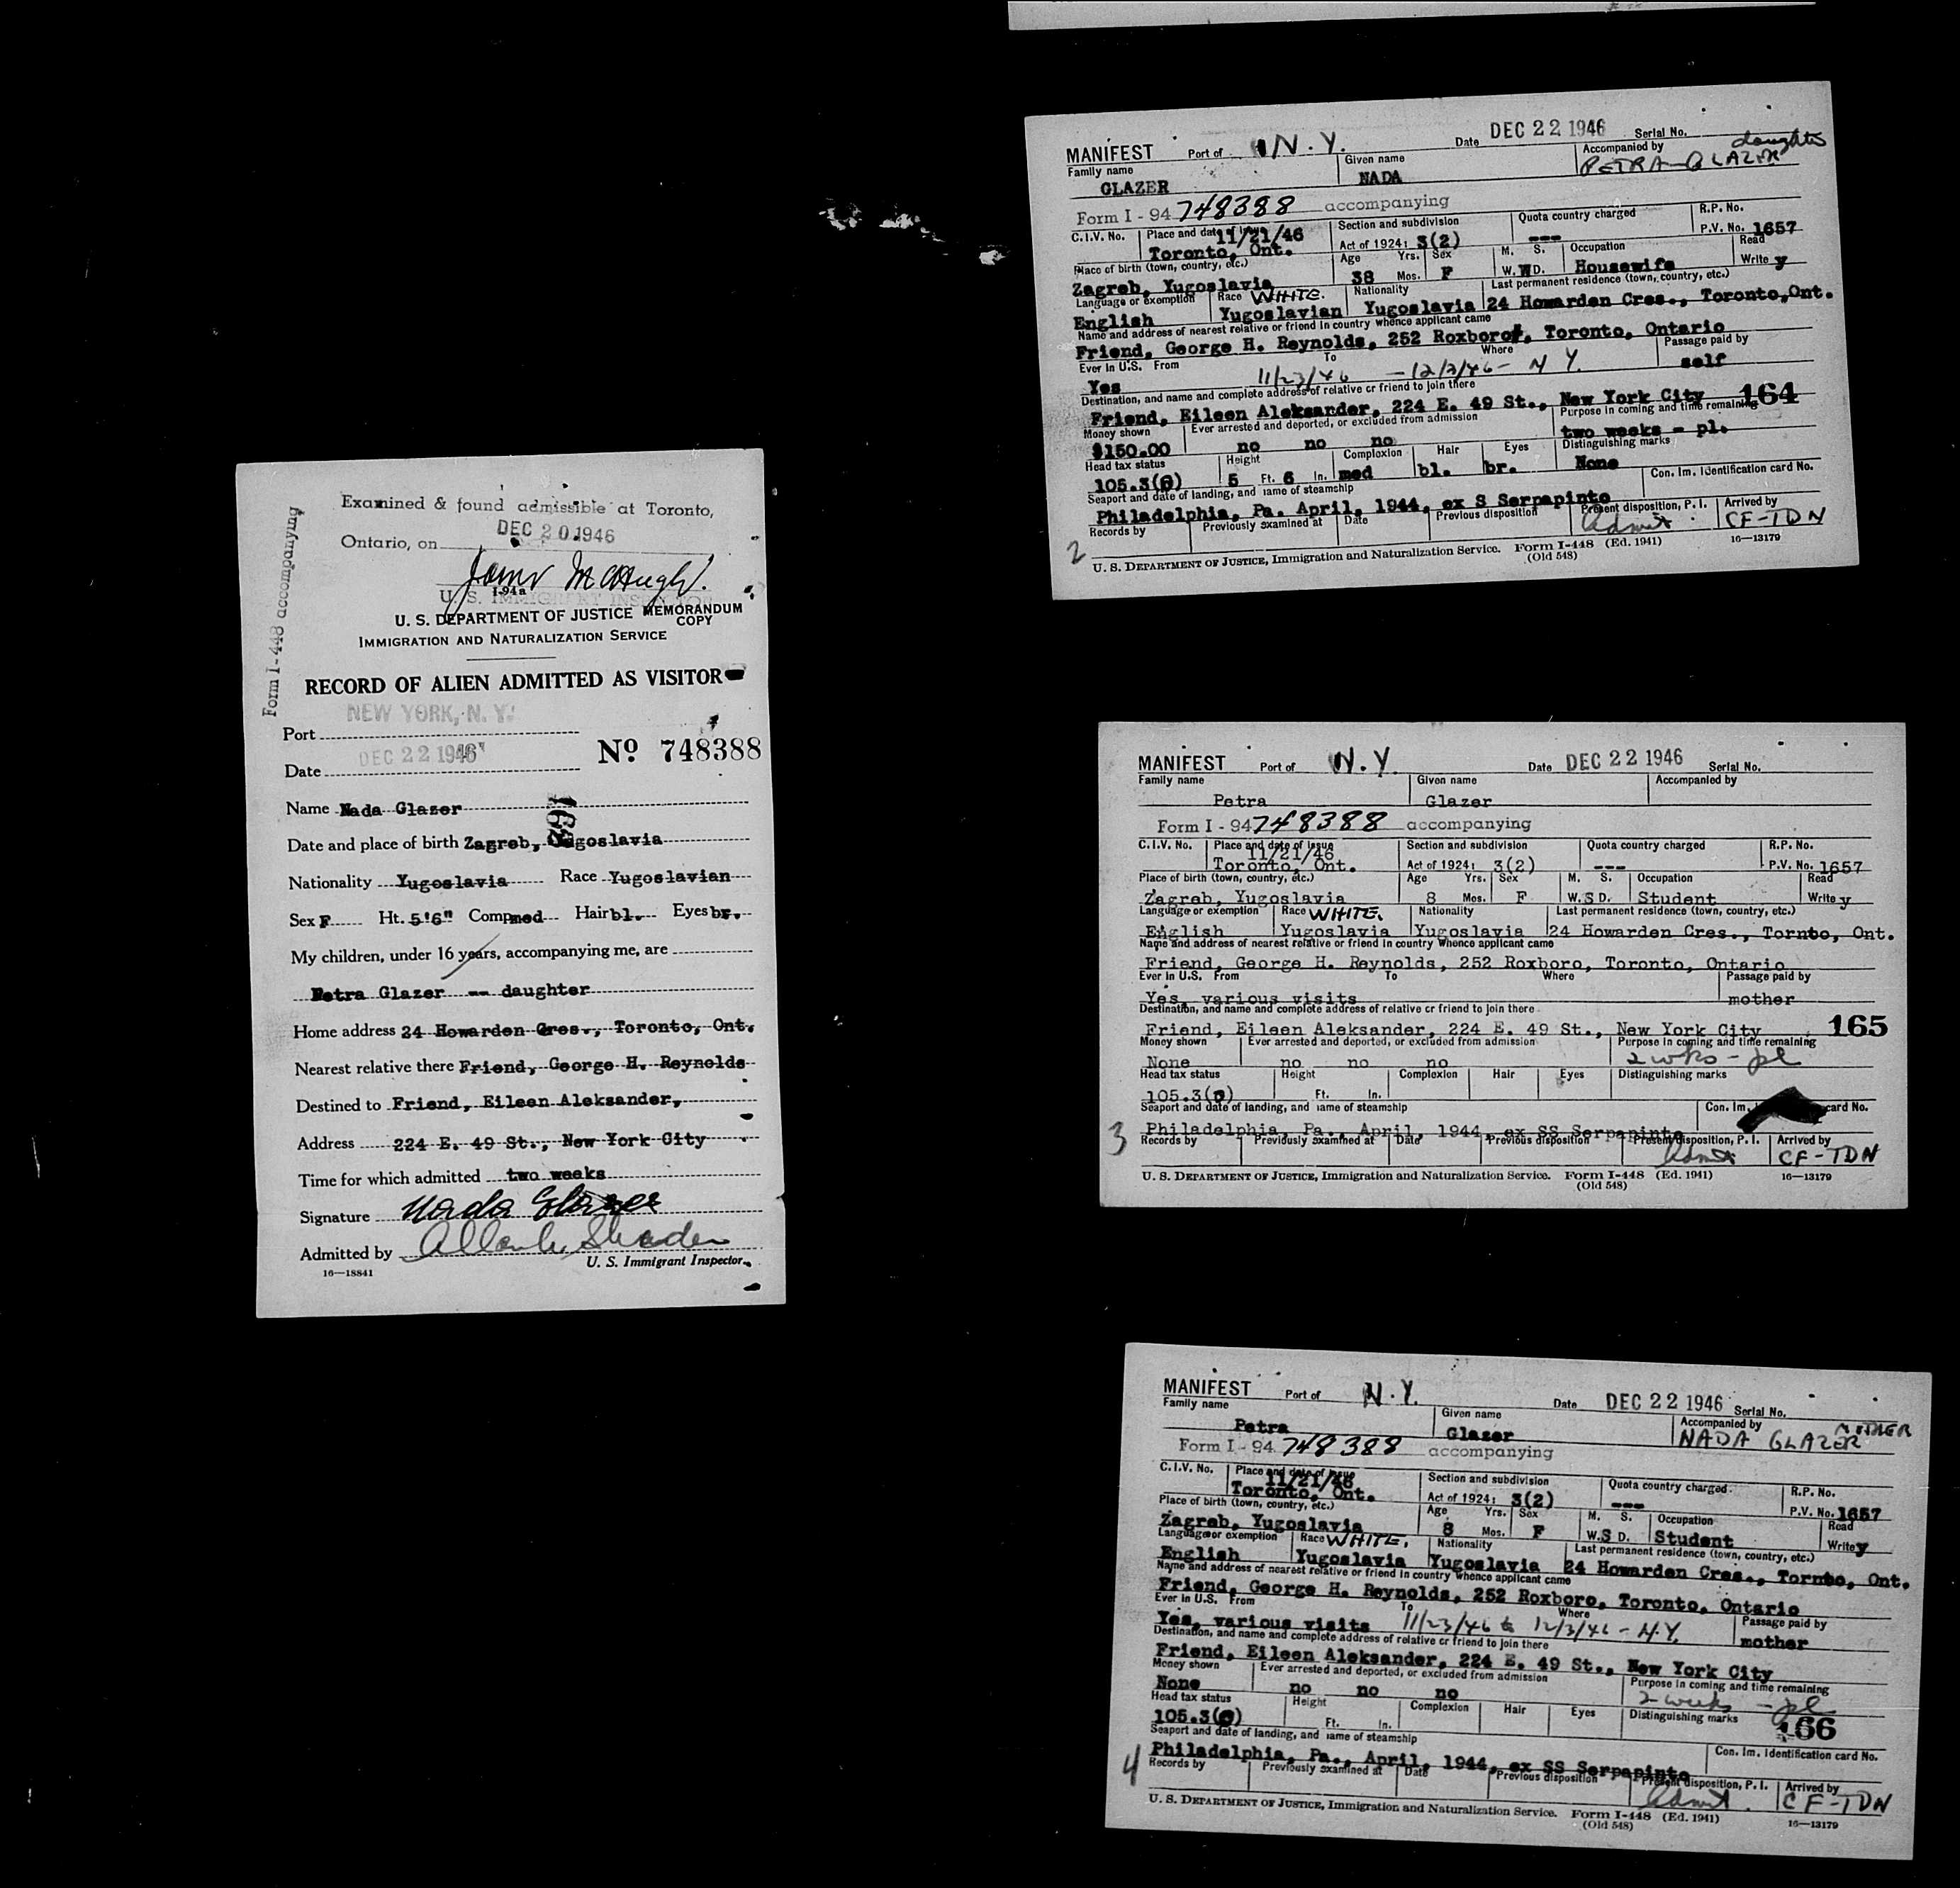 Form I-448 accompanying
Examined & found admissible at Toronto,
Ontario, on DEC 20 1946
I-94a
U. S. IMMIGRANT INSPECTOR
U. S. DEPARTMENT OF JUSTICE MEMORANDUM COPY
IMMIGRATION AND NATURALIZATION SERVICE
RECORD OF ALIEN ADMITTED AS VISITOR
Port NEW YORK, N. Y.
Date DEC 22 1946 No 748388
Name Nada Glazer
163
Date and place of birth Zagreb, Yugoslavia
Nationality Yugoslavia Race Yugoslavian
Sex F Ht. 5'6" Comp med Hair bl. Eyes br.
My children, under 16 years, accompanying me, are
Petra Glazer -- daughter
Home address 24 Howarden Cres., Toronto, Ont.
Nearest relative there Friend, George H. Reynolds
Destined to Friend, Eileen Aleksander,
Address 224 E. 49 St., New York City
Time for which admitted two weeks
Signature Nada Glazer
Admitted by
U. S. Immigrant Inspector.
16—18841
MANIFEST Port of N.Y. Date DEC 22 1946 Serial No. daughter
Family name Given name Accompanied by
GLAZER NADA PETRA GLAZER
Form I - 94 748388 accompanying
C.I.V. No. Place and date of issue Section and subdivision Quota country charged R.P. No.
11/21/46
Toronto, Ont. Act of 1924: 3(2) --- P.V. No. 1657
Place of birth (town, country, etc.) Age Yrs. Sex M. S. Occupation Read
Zagreb, Yugoslavia 38 Mos. F W. D. Housewife Write y
Language or exemption Race WHITE. Nationality Last permanent residence (town, country, etc.)
English Yugoslavian Yugoslavia 24 Howarden Cres., Toronto, Ont.
Name and address of nearest relative or friend in country whence applicant came
Friend, George H. Reynolds, 252 Roxboro, Toronto, Ontario
Ever in U.S. From To Where Passage paid by
Yes 11/23/46 - 12/3/46 - N Y. self
Destination, and name and complete address of relative or friend to join there
Friend, Eileen Aleksander, 224 E. 49 St., New York City 164
Money shown Ever arrested and deported, or excluded from admission Purpose in coming and time remaining
$150.00 no no no two weeks - pl.
Head tax status Height Complexion Hair Eyes Distinguishing marks
105.3( ) 5 Ft. 6 In. med bl. br. None
Seaport and date of landing, and name of steamship Con. Im. Identification card No.
Philadelphia, Pa. April, 1944, ex S Serpapinto
Records by Previously examined at Date Previous disposition Present disposition, P. I. Arrived by
Admit CF-TDN
2
U. S. DEPARTMENT OF JUSTICE, Immigration and Naturalization Service. Form I-448 (Ed. 1941) 16—13179
(Old 548)
MANIFEST Port of N.Y. Date DEC 22 1946 Serial No.
Family name Given name Accompanied by
Petra Glazer
Form I - 94 748388 accompanying
C.I.V. No. Place and date of issue Section and subdivision Quota country charged R.P. No.
11/21/46
Toronto, Ont. Act of 1924: 3(2) --- P.V. No. 1657
Place of birth (town, country, etc.) Age Yrs. Sex M. S. Occupation Read
Zagreb, Yugoslavia 8 Mos. F W. S D. Student Write y
Language or exemption Race WHITE. Nationality Last permanent residence (town, country, etc.)
English Yugoslavia Yugoslavia 24 Howarden Cres., Tornto, Ont.
Name and address of nearest relative or friend in country whence applicant came
Friend, George H. Reynolds, 252 Roxboro, Toronto, Ontario
Ever in U.S. From To Where Passage paid by
Yes, various visits mother
Destination, and name and complete address of relative or friend to join there
Friend, Eileen Aleksander, 224 E. 49 St., New York City 165
Money shown Ever arrested and deported, or excluded from admission Purpose in coming and time remaining
None no no no 2 wks - pl
Head tax status Height Complexion Hair Eyes Distinguishing marks
105.3( ) Ft. In.
Seaport and date of landing, and name of steamship Con. Im. card No.
Philadelphia, Pa., April, 1944, ex SS Serpapinto
Records by Previously examined at Date Previous disposition Present disposition, P. I. Arrived by
Admit CF-TDN
3
U. S. DEPARTMENT OF JUSTICE, Immigration and Naturalization Service. Form I-448 (Ed. 1941) 16—13179
(Old 548)
MANIFEST Port of N.Y. Date DEC 22 1946 Serial No. MOTHER
Family name Given name Accompanied by
Petra Glazer NADA GLAZER
Form I - 94 748388 accompanying
C.I.V. No. Place and date of issue Section and subdivision Quota country charged R.P. No.
11/21/46
Toronto, Ont. Act of 1924: 3(2) --- P.V. No. 1657
Place of birth (town, country, etc.) Age Yrs. Sex M. S. Occupation Read
Zagreb, Yugoslavia 8 Mos. F W. S D. Student Write y
Language or exemption Race WHITE. Nationality Last permanent residence (town, country, etc.)
English Yugoslavia Yugoslavia 24 Howarden Cres., Tornto, Ont.
Name and address of nearest relative or friend in country whence applicant came
Friend, George H. Reynolds, 252 Roxboro, Toronto, Ontario
Ever in U.S. From To Where Passage paid by
Yes, various visits 11/23/46 to 12/3/46 - N.Y. mother
Destination, and name and complete address of relative or friend to join there
Friend, Eileen Aleksander, 224 E. 49 St., New York City
Money shown Ever arrested and deported, or excluded from admission Purpose in coming and time remaining
None no no no 2 weeks - pl
Head tax status Height Complexion Hair Eyes Distinguishing marks 166
105.3( ) Ft. In.
Seaport and date of landing, and name of steamship Con. Im. Identification card No.
Philadelphia, Pa., April, 1944, ex SS Serpapinto
Records by Previously examined at Date Previous disposition Present disposition, P. I. Arrived by
Admit CF-TDN
4
U. S. DEPARTMENT OF JUSTICE, Immigration and Naturalization Service. Form I-448 (Ed. 1941) 16—13179
(Old 548)